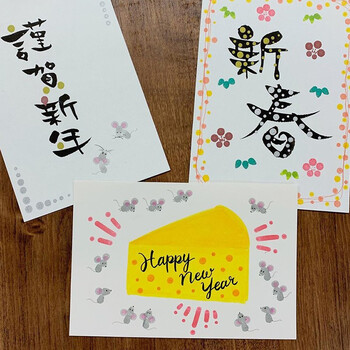 謹賀新年
新春
Happy
New
Year